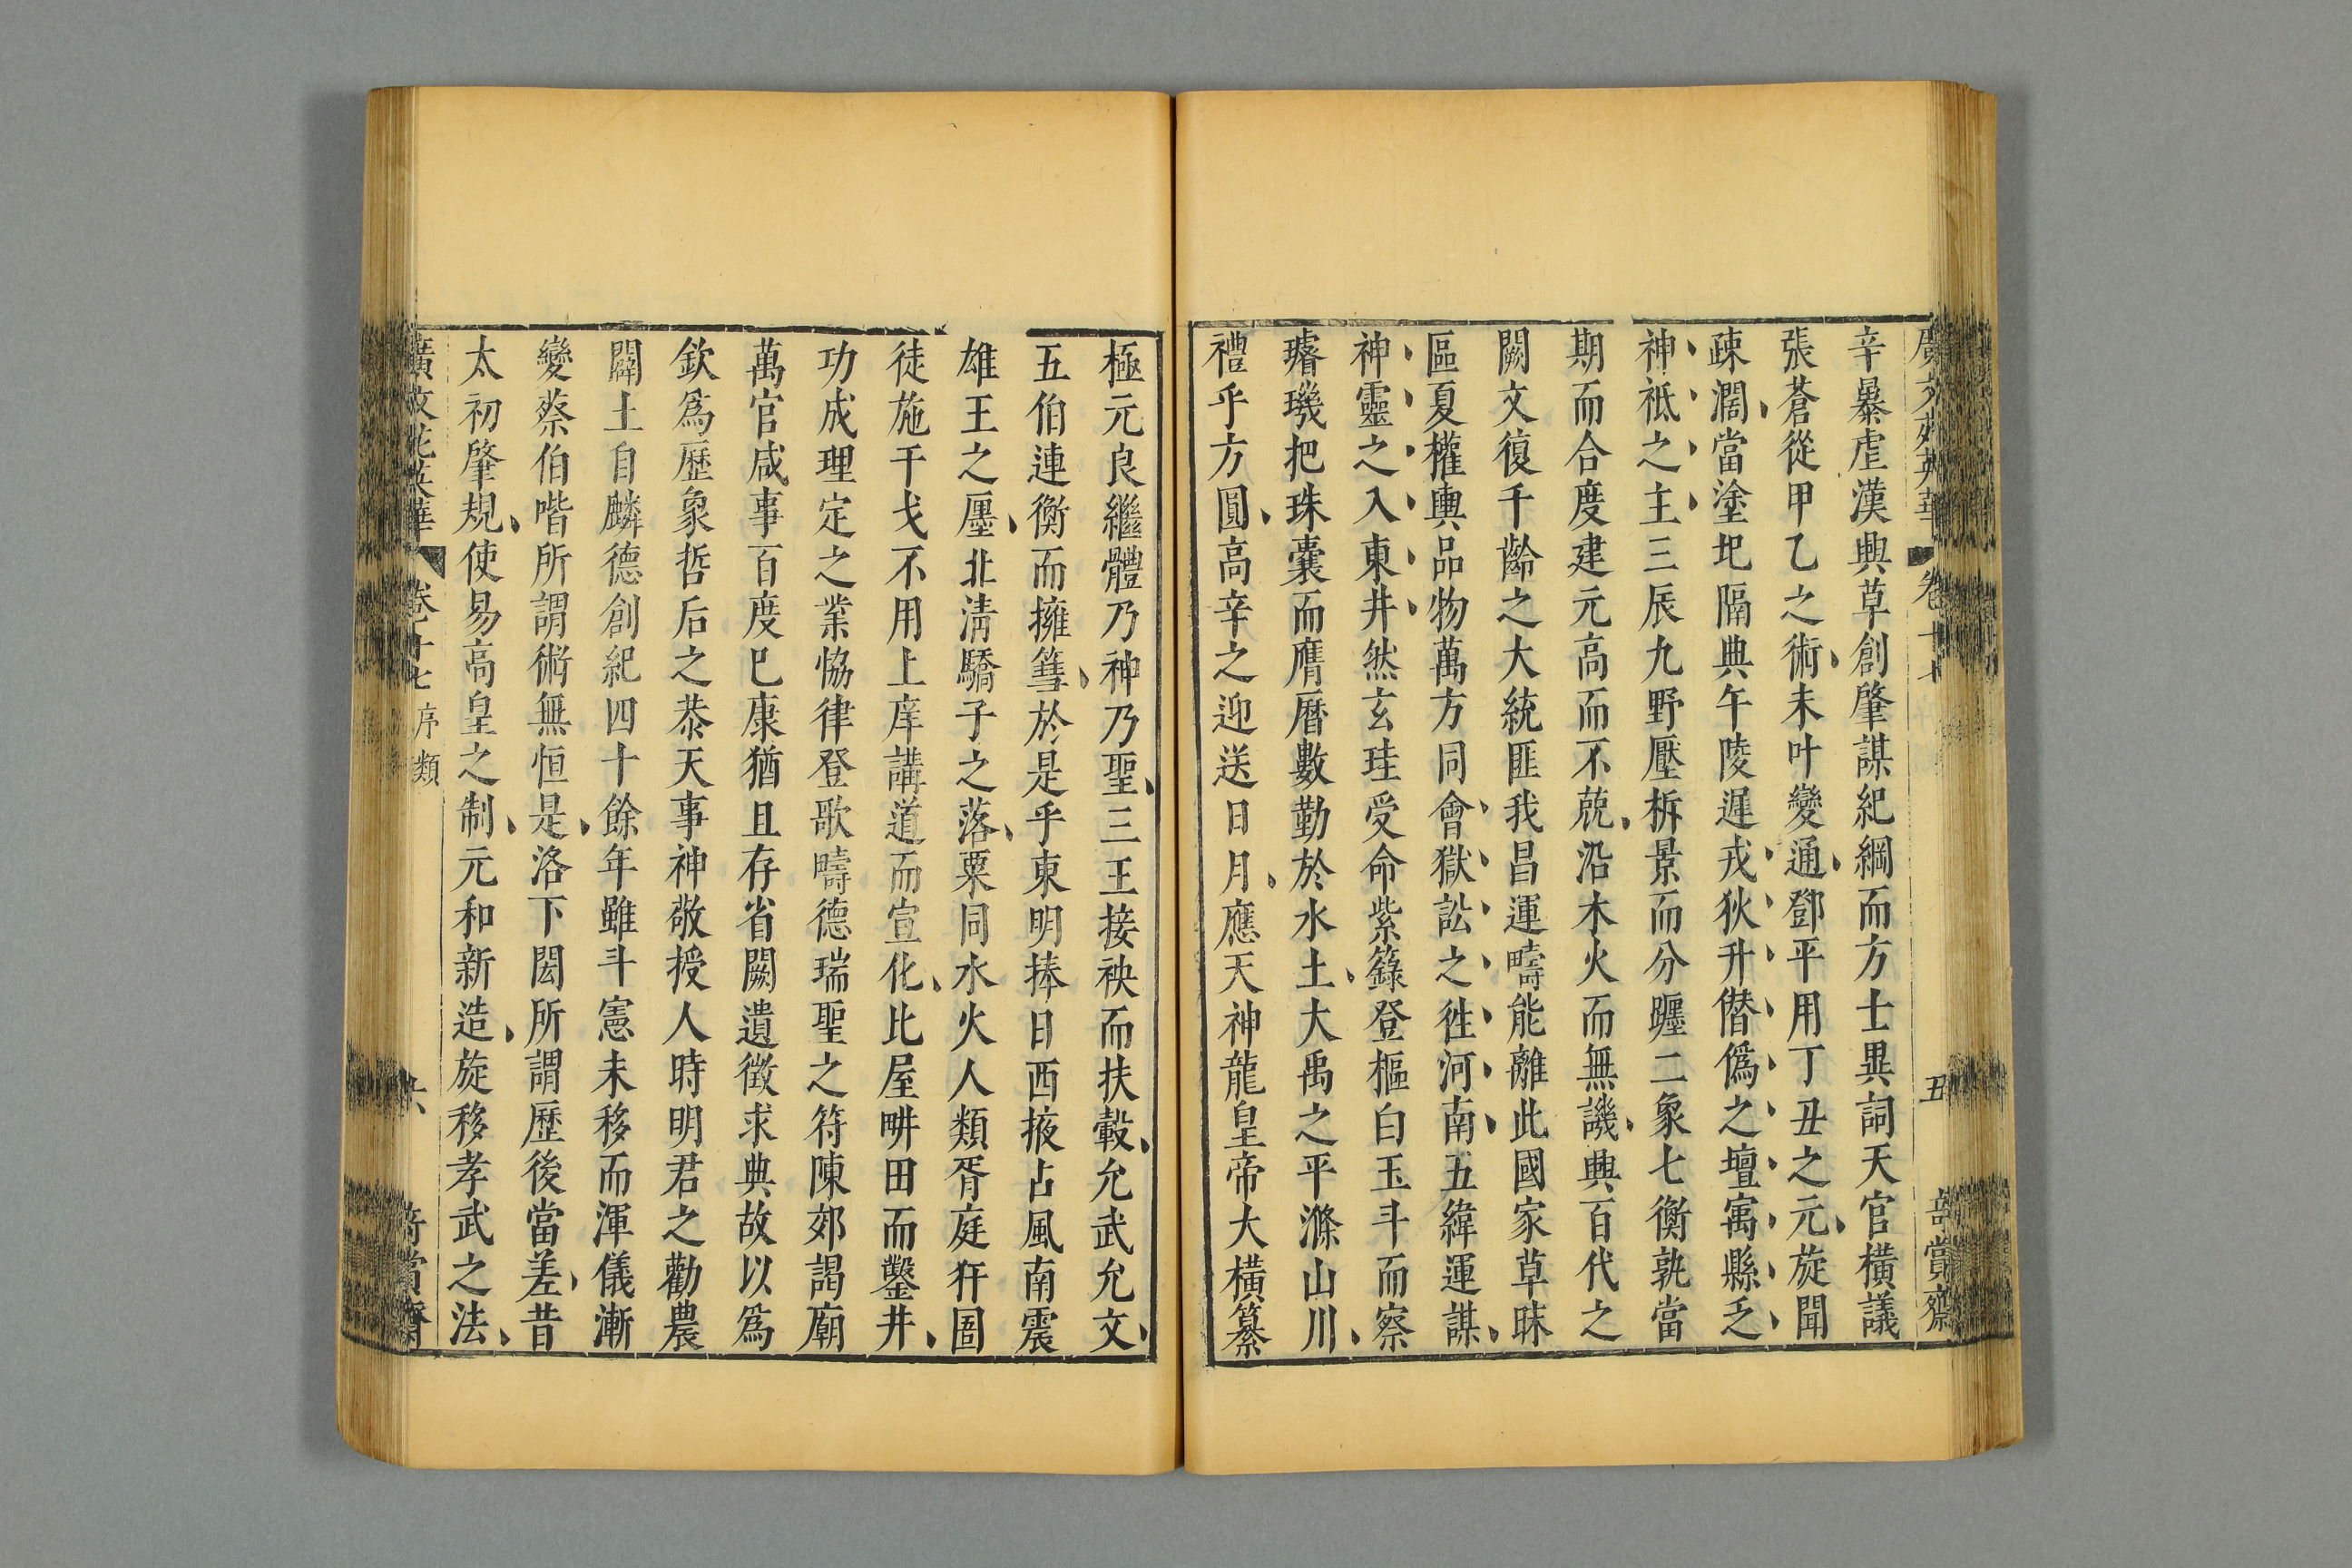 廣文苑英華 卷十七 五 奇賞齋
辛暴虐漢興草創肇謀紀綱而方士異詞天官橫議
張蒼從甲乙之術未叶變通鄧平用丁丑之元旋聞
疎濶當塗圯隔典午陵遲戎狄升僣僞之壇寓縣乏
神祗之主三辰九野壓柝景而分躔二象七衡孰當
期而合度建元高而不蔇沿木火而無譏興百代之
闕文復千齡之大統匪我昌運疇能離此國家草昧
區夏權輿品物萬方同會獄訟之徃河南五緯運謀
神靈之入東井然玄珪受命紫籙登樞白玉斗而察
璿璣把珠囊而膺曆數勤於水土大禹之平滌山川
禮乎方圓高辛之迎送日月應天神龍皇帝大橫纂
極元良繼體乃神乃聖三王接袂而扶轂允武允文
五伯連衡而擁篲於是乎東明捧日西掖占風南震
雄王之廛北淸驕子之落粟同水火人類胥庭犴圄
徒施干戈不用上庠講道而宣化比屋畊田而鑿井
功成理定之業恊律登歌疇德瑞聖之符陳郊謁廟
萬官咸事百度巳康猶且存省闕遺徵求典故以爲
欽爲歷象哲后之恭天事神敬授人時明君之勸農
闢土自麟德創紀四十餘年雖斗憲未移而渾儀漸
變蔡伯喈所謂術無恒是洛下閎所謂歷後當差昔
太初肇規使易高皇之制元和新造旋移孝武之法
廣文苑英華 卷十七 序類 六 奇賞齋